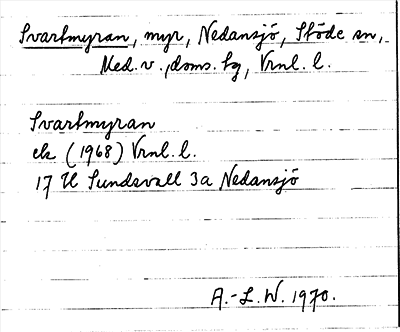 Svartmyran, myr, Nedansjö, Stöde sn,
Med. v., doms. tg, Vrnl. l.
Svartmyran
ek (1968) Vrnl. l.
17 H Sundsvall 3a Nedansjö
A.-L. W. 1970.